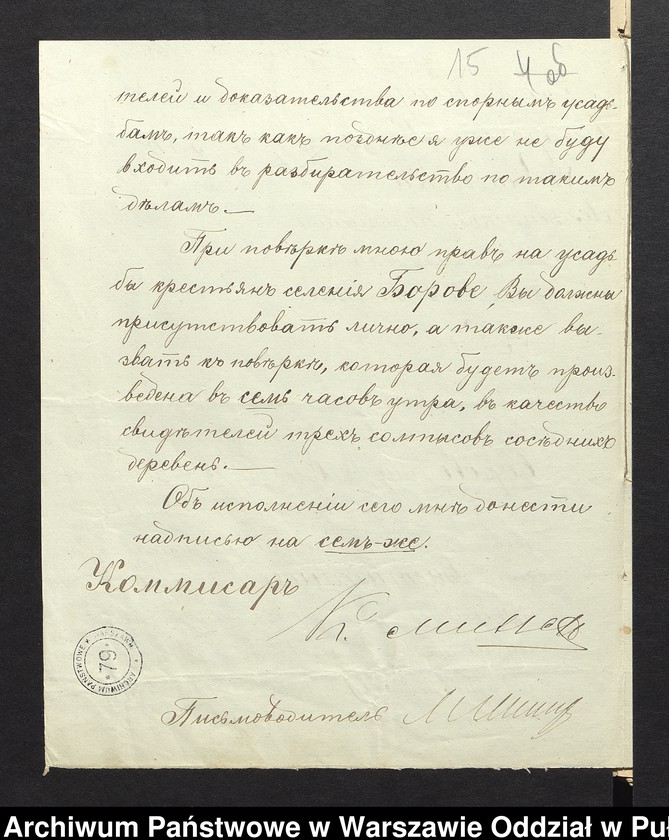 15 4 об
телей и доказательства по спорнымъ усадь-
бамъ, такъ какъ позднѣе я уже не буду
входить въ разбирательство по такимъ
дѣламъ.—
При повѣркѣ мною правъ на усадь
бы крестьянъ селенія Борове, Вы должны
присутствовать лично, а также вы-
звать къ повѣркѣ, которая будетъ произ-
ведена въ семь часовъ утра, въ качествѣ
свидѣтелей трехъ солтысовъ сосѣднихъ
деревень.—
Объ исполненіи сего мнѣ донести
надписью на семъ-же.
Коммисаръ
ARCHIWUM PAŃSTWOWE W WARSZAWIE
79
Письмоводитель
Archiwum Państwowe w Warszawie Oddział w Pu